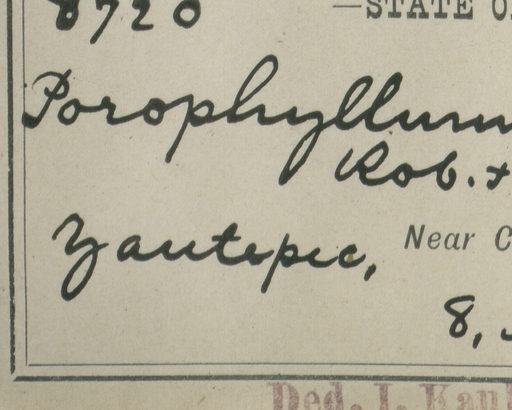 8720 —STATE O
Porophyllum
Rob. +
Yautepec, Near C
8,
Ded. J. Kau